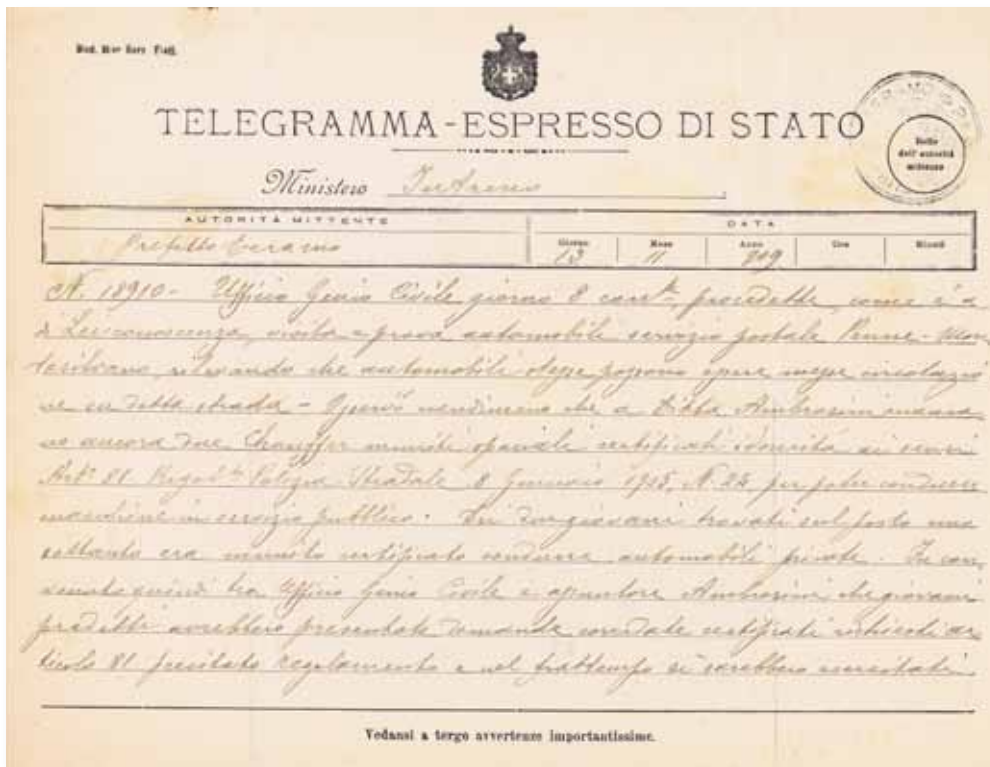 TELEGRAMMA-ESPRESSO DI STATO
Bollo
dell'autorità
mittente
Ministero Interno
AUTORITÀ MITTENTE
DATA
Prefetto Teramo
Giorno Mese Anno Ora Minuti
13 11 909
N. 18910 - Ufficio Genio Civile giorno 8 corr.te procedette, come è a
di Lei conoscenza, visita e prova automobili servizio postale Penne - Mon
tesilvano, rilevando che automobili stesse possono essere messe in circolazio
ne su detta strada - Osservò nondimeno che a Ditta Ambrosini manca
no ancora due Chauffer muniti speciali certificati idoneità ai sensi
Art.° 81 Regol.to Polizia Stradale 8 Gennaio 1905, N. 24, per poter condurre
macchine in servizio pubblico. Dei due giovani trovati sul posto uno
soltanto era munito certificato condurre automobili private. Fu con
venuto quindi tra Ufficio Genio Civile e Ambrosini che giovani
predetti avrebbero presentate domande corredate certificati richiesti ar
ticolo 81 precitato regolamento e nel frattempo si sarebbero esercitati
Vedansi a tergo avvertenze importantissime.